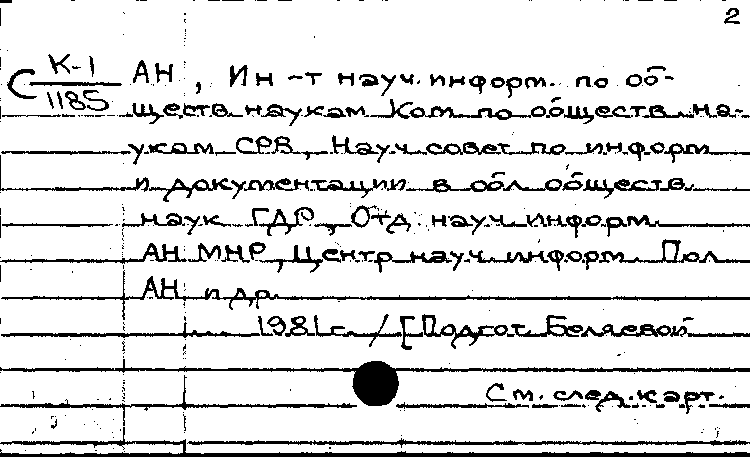 2
С К-1/1185
АН, Ин-т науч. информ. по об-
ществ. наукам. Ком. по обществ. на-
укам СРВ, Науч. совет по информ.
и документации в обл. обществ.
наук ГДР, Отд. науч. информ.
АН МНР, Центр науч. информ. Пол.
АН и др.
... 1981 г. / [Подгот. Беляевой
См. след. карт.